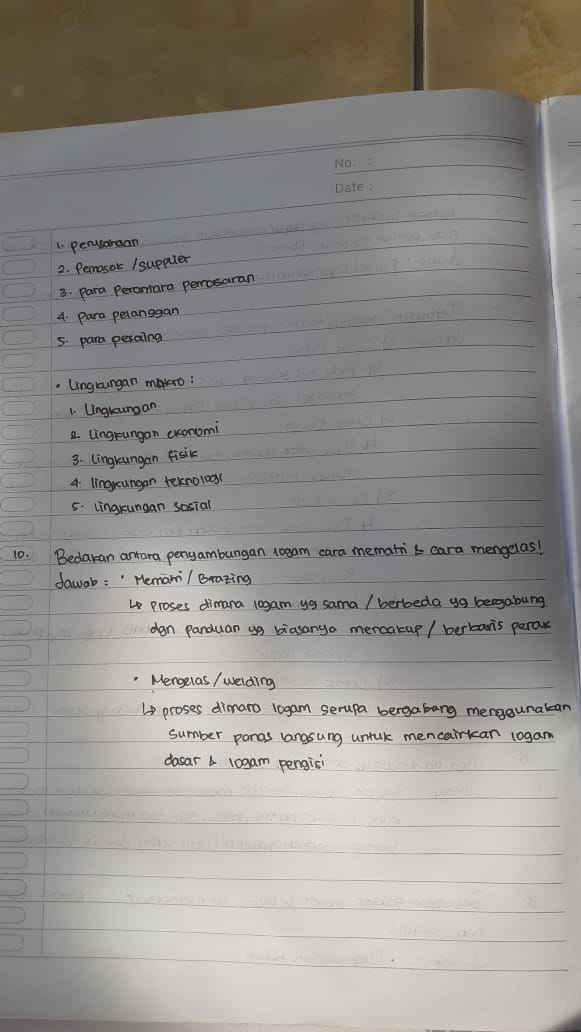 No. :
Date :
1. perusahaan
2. Pemasok / supplier
3. para Perantara pemasaran
4. Para pelanggan
5. para pesaing
• Lingkungan makro :
1. Lingkungan
2. Lingkungan ekonomi
3. Lingkungan fisik
4. lingkungan teknologi
5. Lingkungan sosial
10. Bedakan antara penyambungan logam cara mematri & cara mengelas!
Jawab : • Mematri / Brazing
↳ proses dimana logam yg sama / berbeda yg bergabung
dgn panduan yg biasanya mencakup / berbaris perak
• Mengelas / welding
↳ proses dimana logam serupa bergabang menggunakan
sumber panas langsung untuk mencairkan logam
dasar & logam pengisi